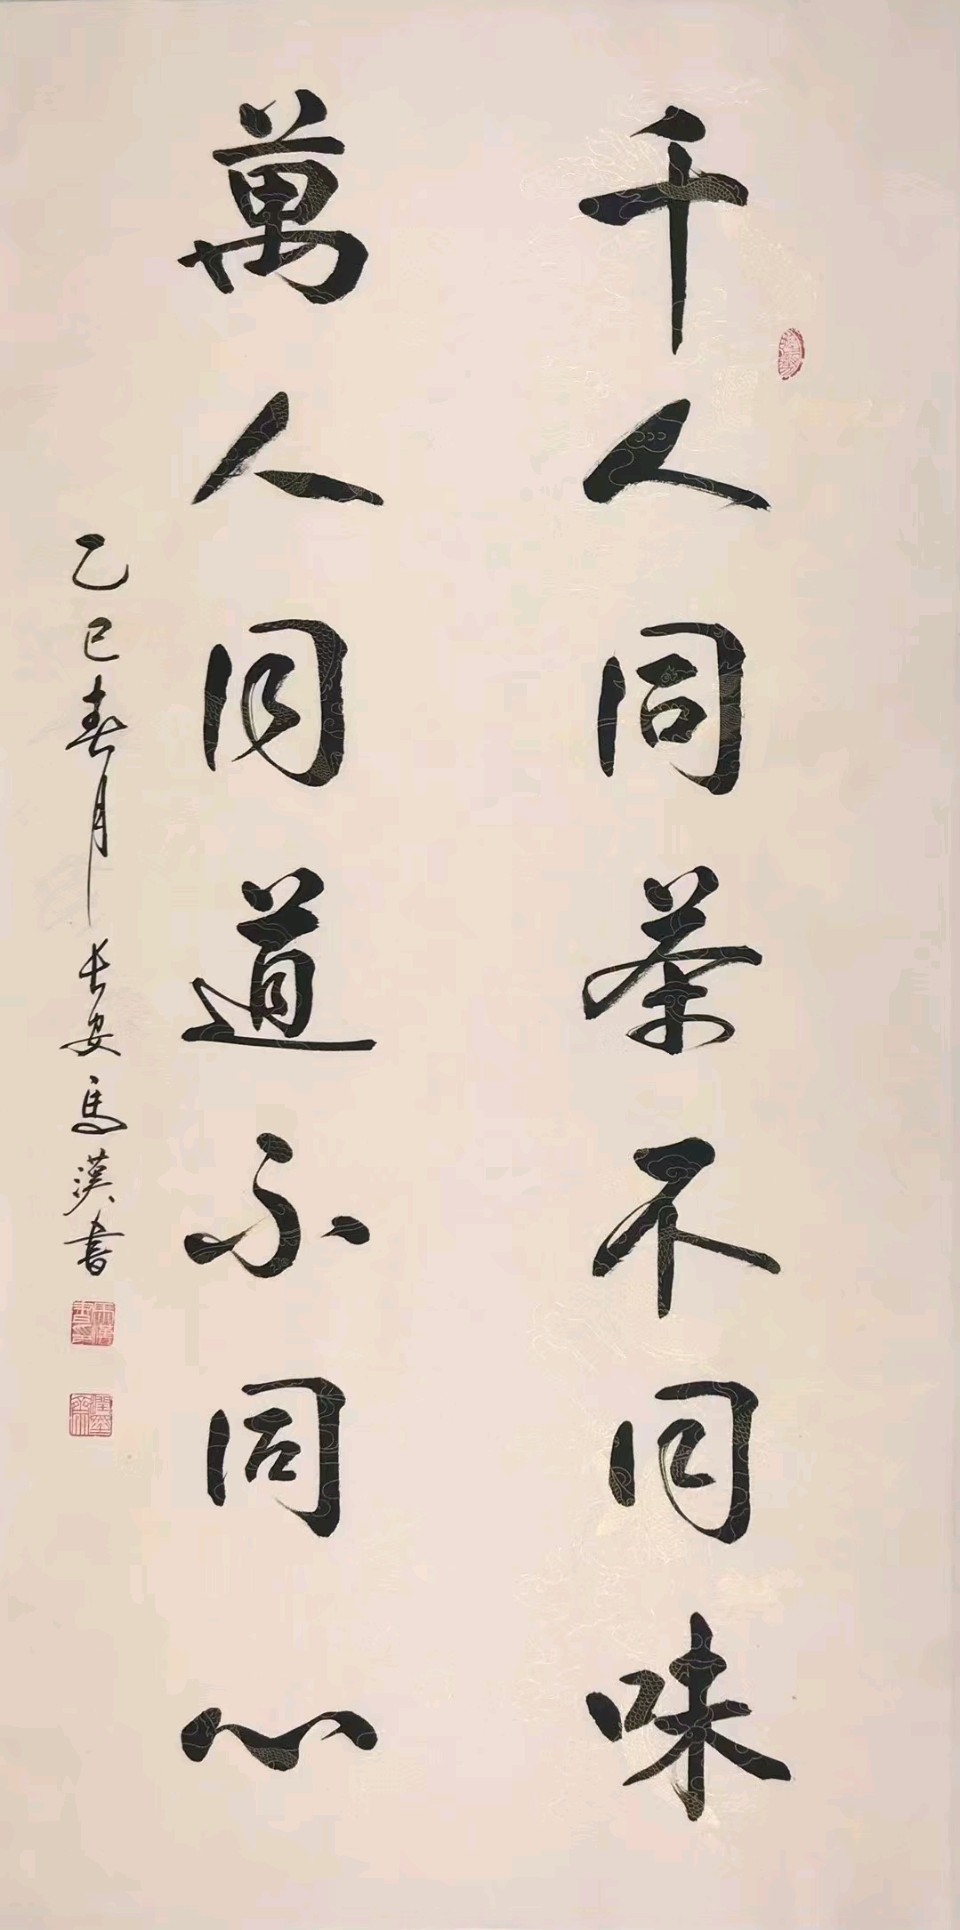 千人同茶不同味
萬人同道不同心
乙巳春月長安馬漢書